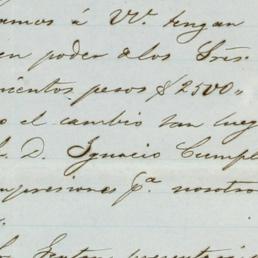 amos á VV. tengan
en poder de los Sres.
cientos pesos $ 2500„
o el cambio tan lueg
D. Ygnacio Cumpl
mpresiones pª. nosotro